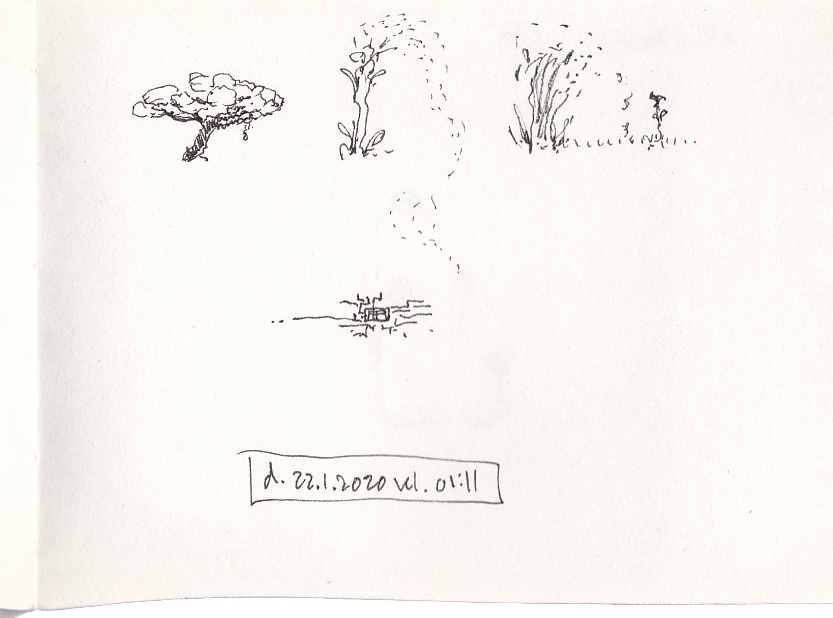 d. 22.1.2020 kl. 01:11